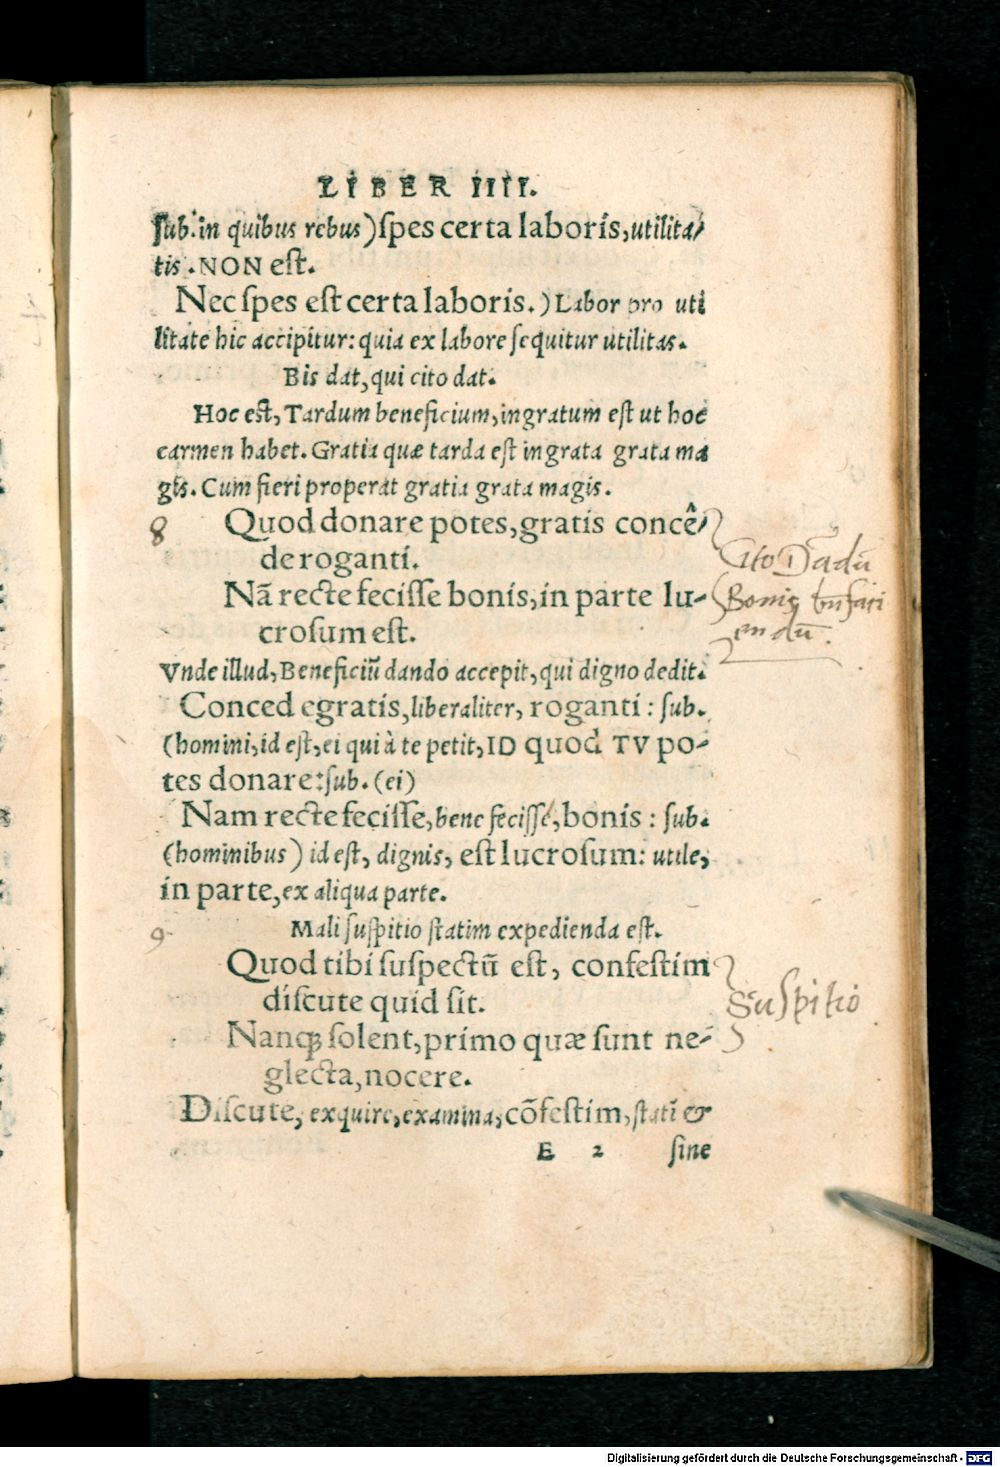 LIBER IIII.
sub. in quibus rebus) spes certa laboris, utilita-
tis. NON est.
Nec spes est certa laboris.) Labor pro uti
litate hic accipitur: quia ex labore sequitur utilitas.
Bis dat, qui cito dat.
Hoc est, Tardum beneficium, ingratum est ut hoc
carmen habet. Gratia quæ tarda est ingrata grata ma
gis. Cum fieri properat gratia grata magis.
8 Quod donare potes, gratis concê-
de roganti.
Cito Dādū
Nā recte fecisse bonis, in parte lu-
Bonis bn̄faci
crosum est.
endū.
Vnde illud, Beneficiū dando accepit, qui digno dedit.
Conced egratis, liberaliter, roganti: sub.
(homini, id est, ei qui à te petit, ID quod TV po-
tes donare: sub. (ei)
Nam recte fecisse, bene fecisse, bonis: sub.
(hominibus) id est, dignis, est lucrosum: utile,
in parte, ex aliqua parte.
9 Mali suspitio statim expedienda est.
Quod tibi suspectū est, confestim
discute quid sit.
Suspitio
Nanq; solent, primo quæ sunt ne-
glecta, nocere.
Discute, exquire, examina, cōfestim, statī &
E 2 sine
Digitalisierung gefördert durch die Deutsche Forschungsgemeinschaft - DFG